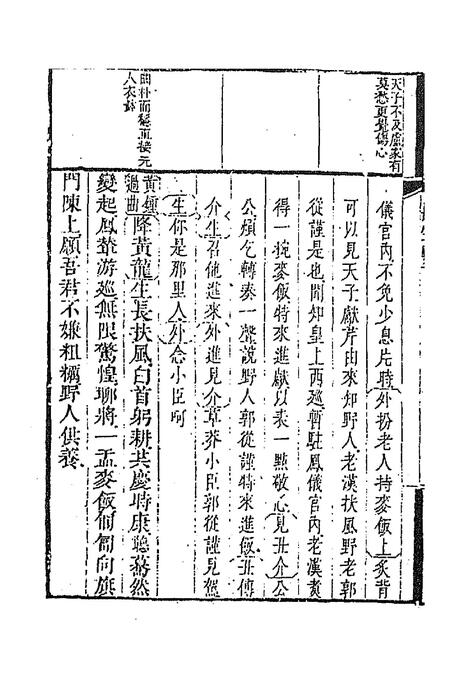 天子不及盧家有
莫愁更覺傷心
曲朴而鬆直接元
人衣鉢
儀宮內不免少息片時外扮老人持麥飯上炙背
可以見天子獻芹由來知野人老漢扶風野老郭
從謹是也聞知皇上西巡暫駐鳳儀宮內老漢煑
得一椀麥飯特來進獻以表一點敬心見丑介公
公煩乞轉奏一聲說野人郭從謹特來進飯丑傳
介生召他進來外進見介草莽小臣郭從謹見駕
生你是那里人外念小臣呵
黃鐘
過曲降黃龍生長扶風白首躬耕共慶時康聽驀然
變起鳳輦游巡無限驚惶聊將一盂麥飯匍匐向旗
門陳上願吾君不嫌粗糲野人供養